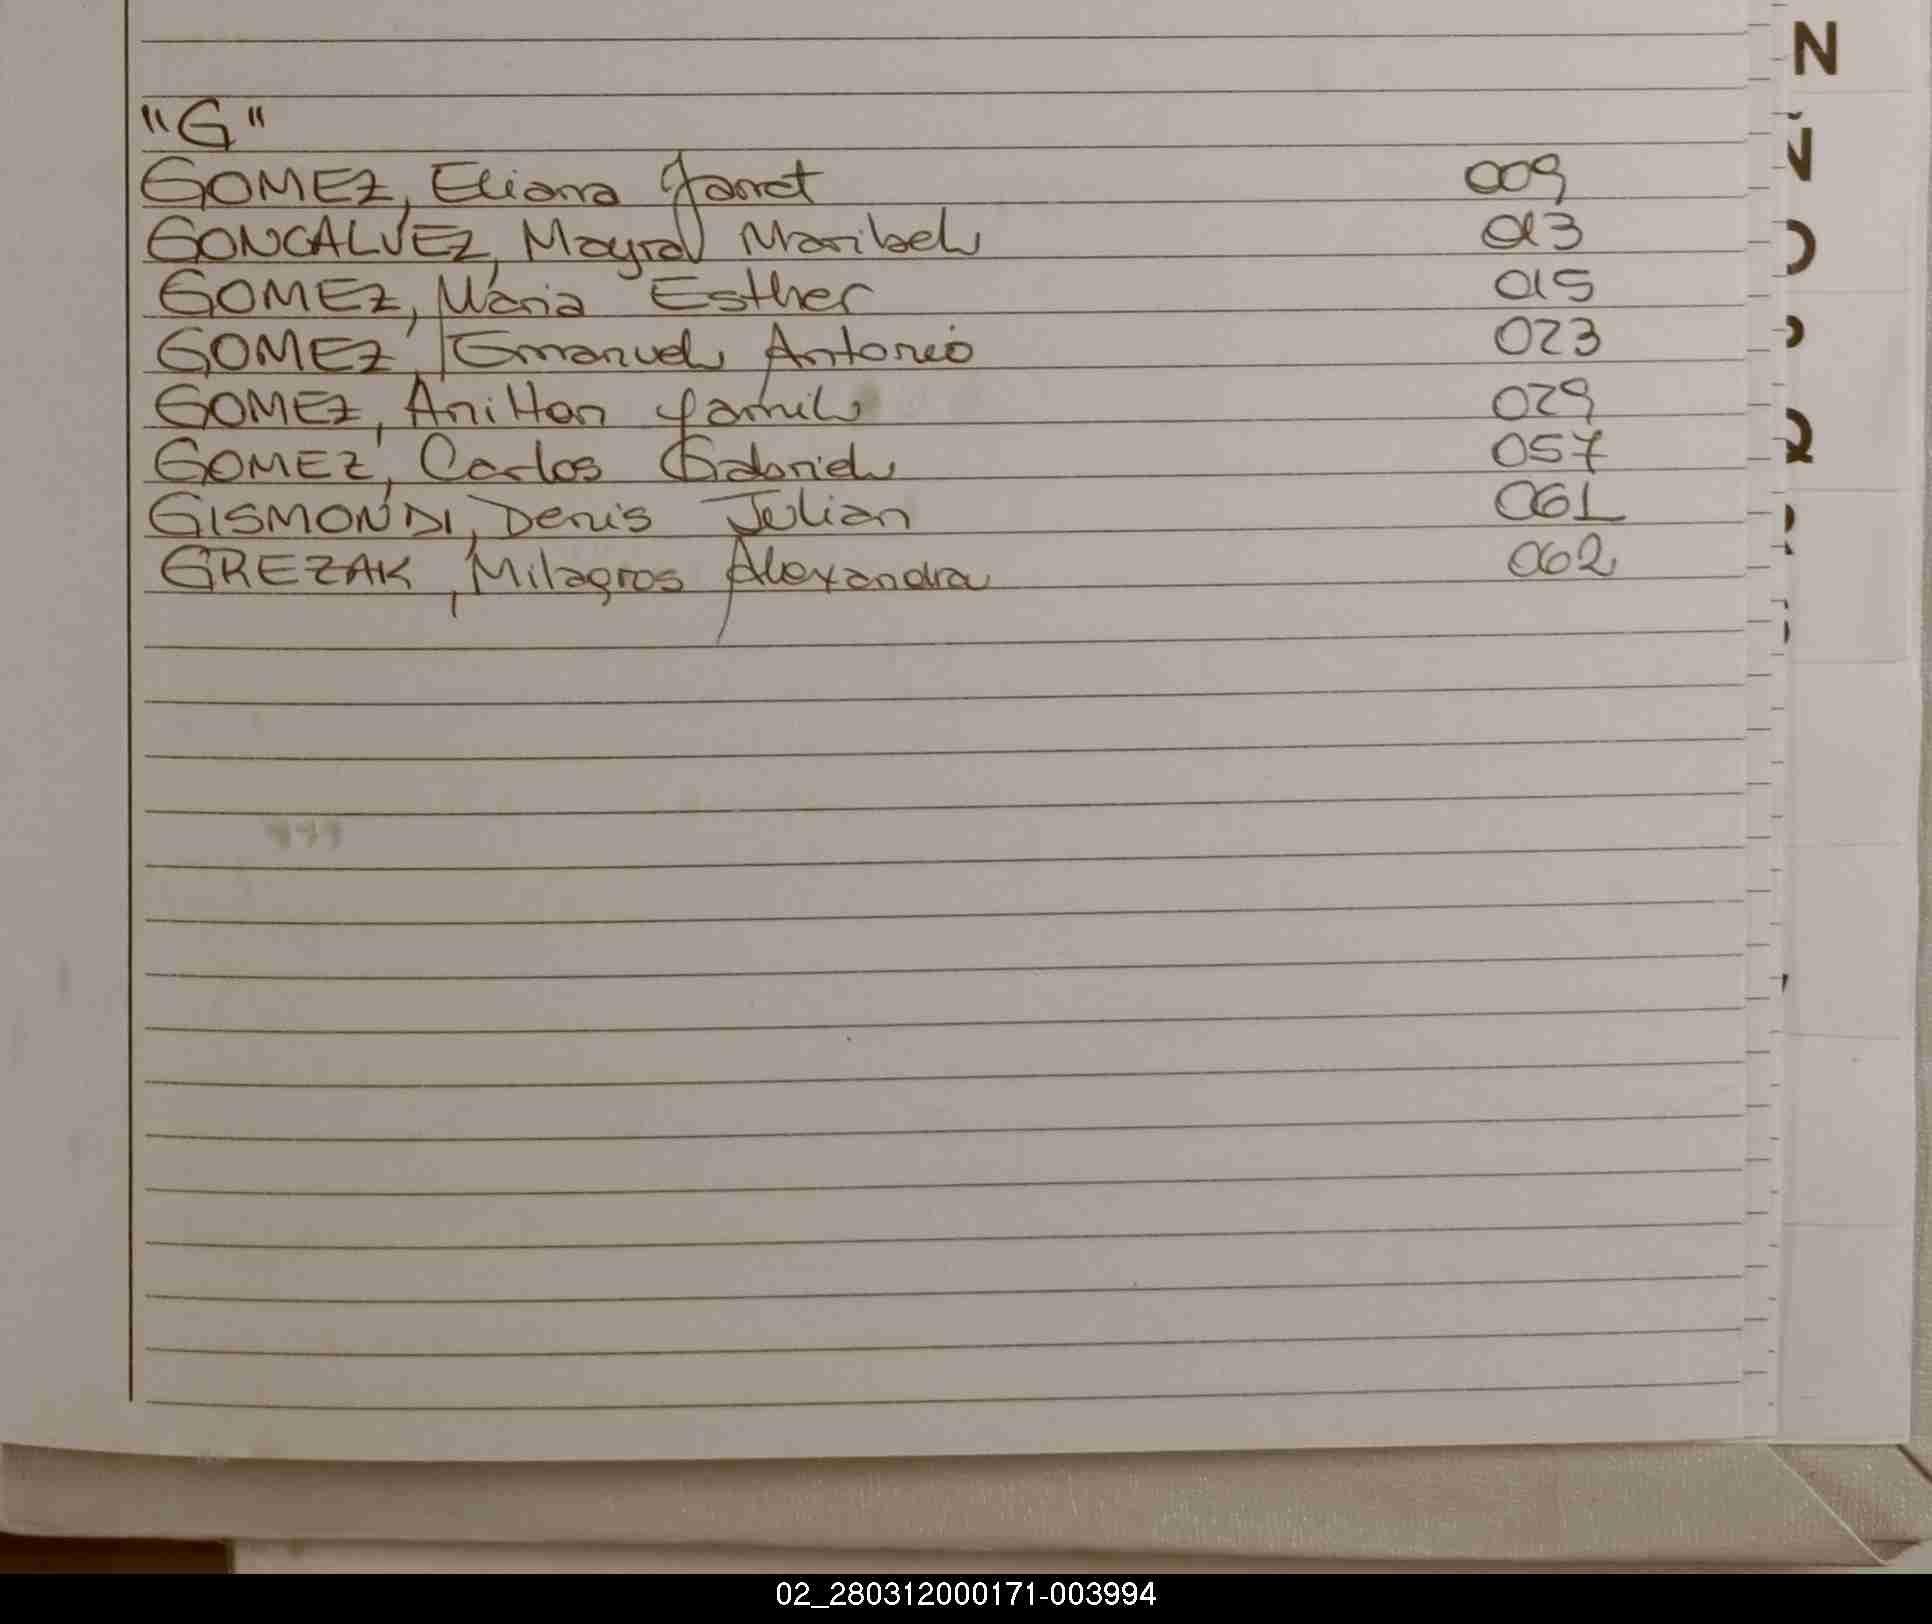 "G"
GOMEZ, Eliana Janet 009
GONCALVEZ, Mayra Maribel 013
GOMEZ, Maria Esther 015
GOMEZ, Emanuel Antonio 023
GOMEZ, Yamil 029
GOMEZ, Carlos Gabriel 057
GISMONDI, Denis Julian 061
GREZAK, Milagros Alexandra 062
N
Ñ
O
P
Q
R
02_280312000171-003994